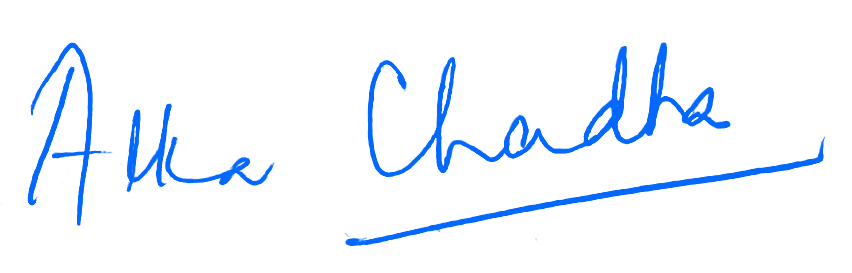 Alka Chadha